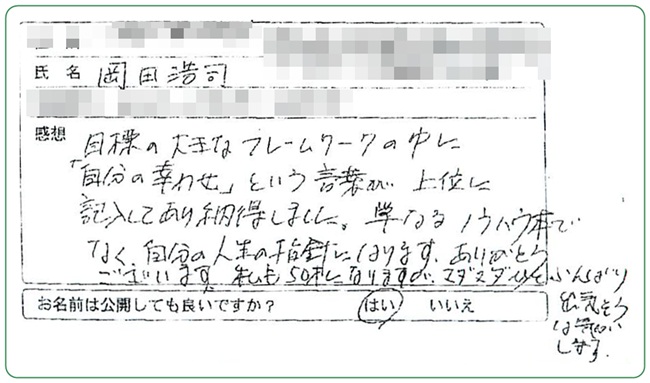 氏名 岡田浩司
感想
目標の大きなフレームワークの中に
「自分の幸わせ」という言葉が、上位に
記入してあり納得しました。単なるノウハウ本で
なく、自分の人生の指針になります。ありがとう
ございます。私も50才になりますが、マダマダひとふんばり
出気そう
な気がい
します。
お名前は公開しても良いですか? はい いいえ